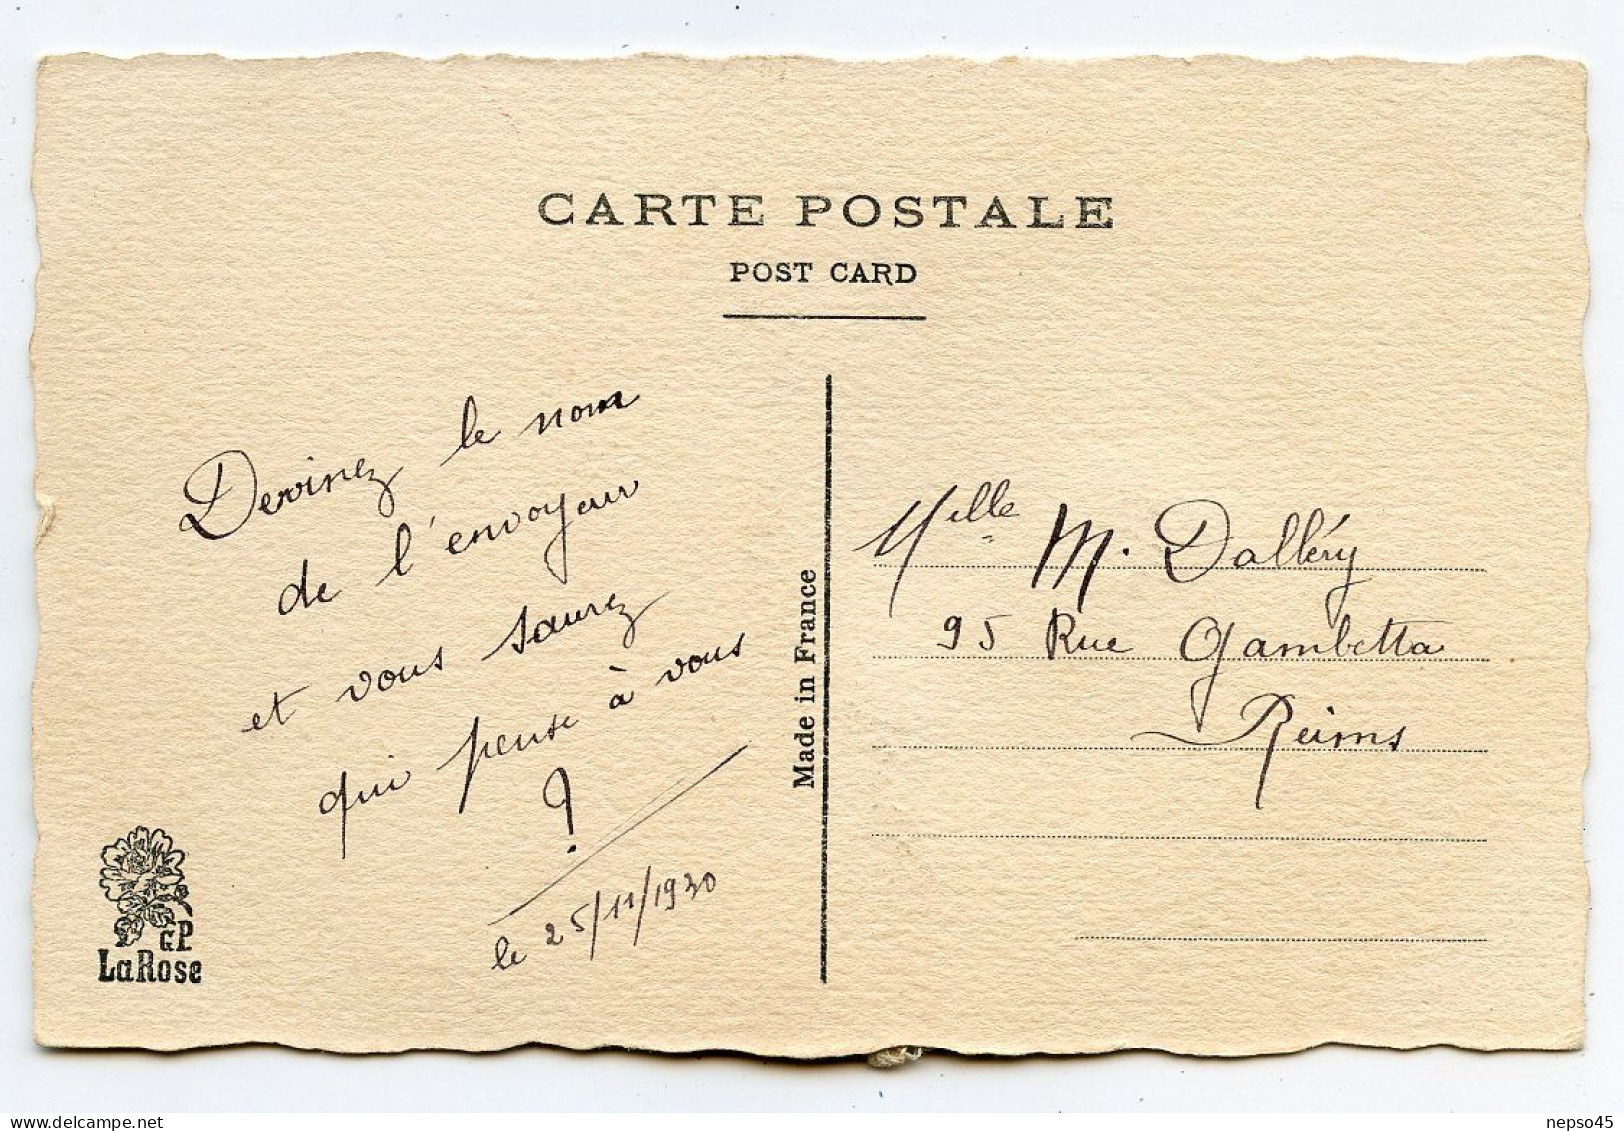 CARTE POSTALE
POST CARD
Devinez le nom
de l'envoyeur
et vous saurez
qui pense à vous
?
le 25/11/1930
G.P.
La Rose
Made in France
Melle M. Dalléry
95 Rue Gambetta
Reims
nepso45